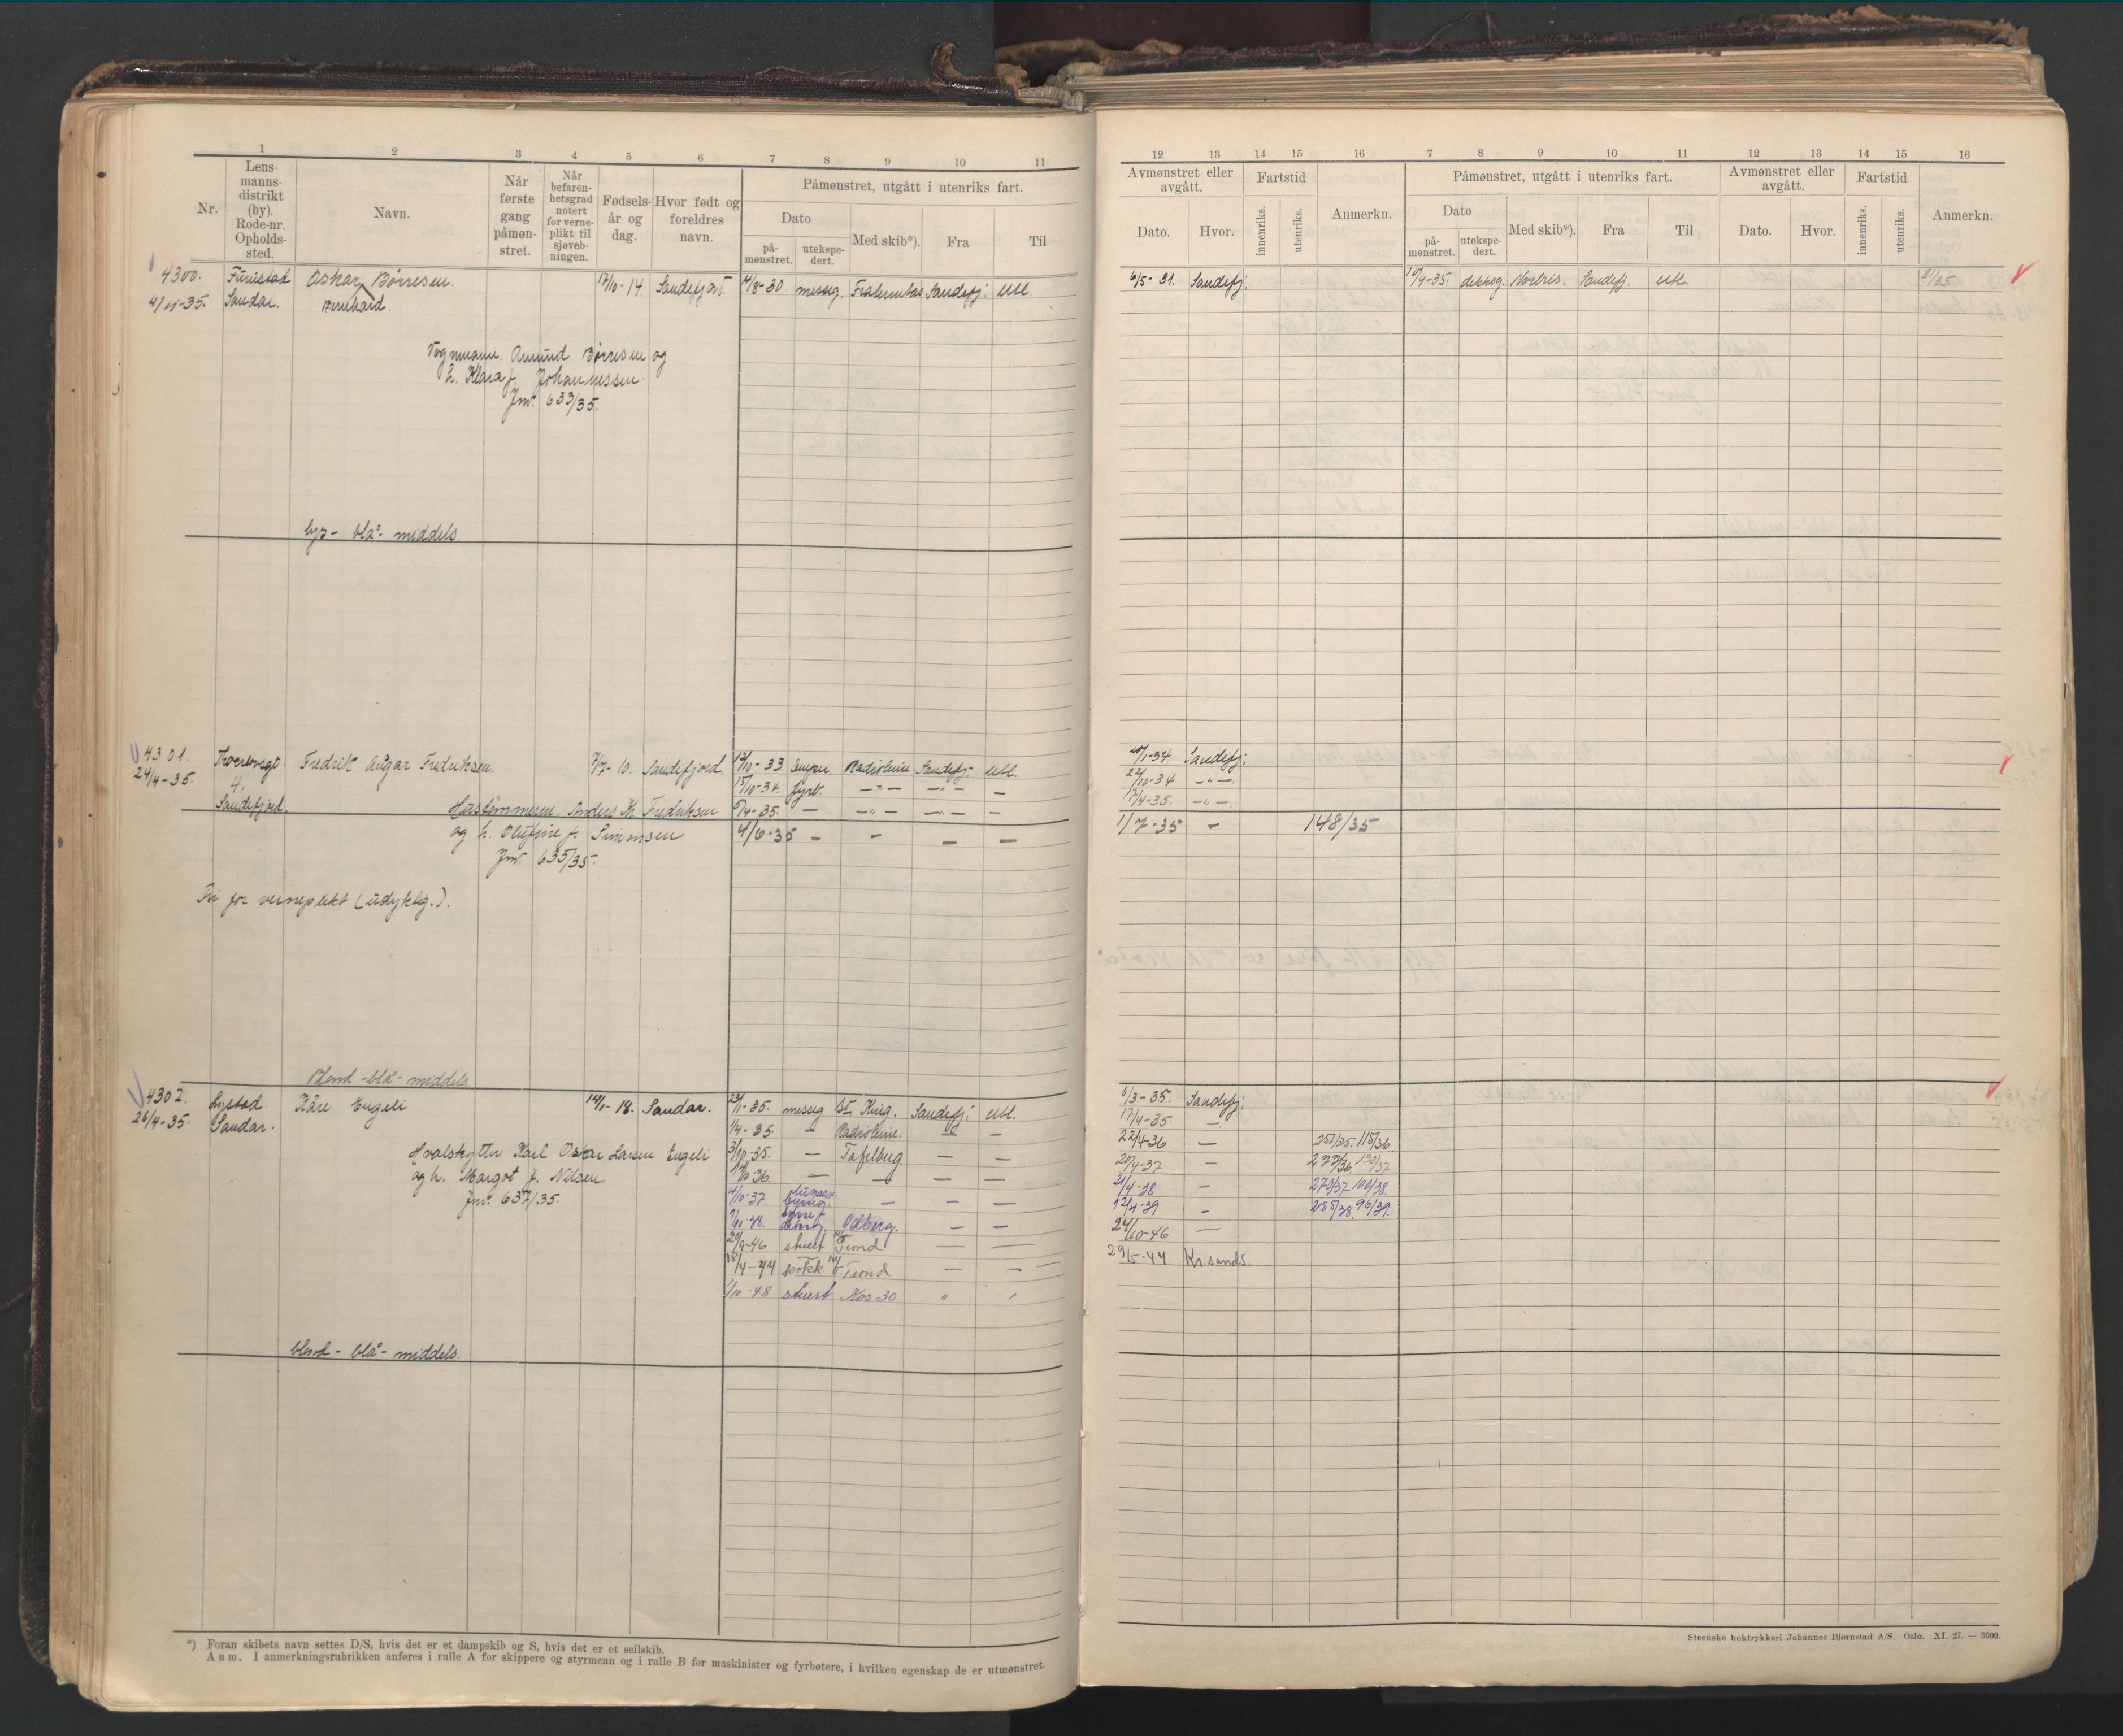 1 2 3 4 5 6 7 8 9 10 11
Nr. Lens-manns-distrikt (by). Rode-nr. Opholds-sted. Navn. Når første gang påmøn-stret. Når befaren-hetsgrad notert for verne-plikt til sjøveb-ningen. Fødsels-år og dag. Hvor født og foreldres navn. Påmønstret, utgått i utenriks fart.
Dato
på-mønstret. utekspe-dert. Med skib*). Fra Til
4300. Furustad Oskar Børresen 12/10-14 Sandefjord. 4/8-30. messeg. Fraternitas Sandefj: Utl.
4/4-35. Sandar. Bernhard.
Vognmann Amund Børresen og
h. Klara f. Johannessen
Jnr. 633/35.
lys- blå- middels.
4301. Fredrik Ansgar Fredriksen. 7/7-10. Sandefjord. 12/10-33 lemper Radioleine Sandefj: Utl.
24/4-35. 4. 15/10-34. fyrb. -"- -"- —
Sandefjord. Hustømmerm. Anders Kr. Fredriksen 5/4-35. — -"- — —
og h. Olufine f. Simonsen 4/6-35 - - - —
Jnr. 635/35.
Fri for verneplikt (udyktig.).
Blond -blå- middels
4302. Lystad Kåre Engeli 14/1-18. Sandar. 23/1-35. messeg St. King. Sandefj: Utl.
26/4-35. Sandar. 1/4-35 — Radioleine. — —
Hvalskytter Karl Oskar Larsen Engeli 3/10-35. — Tafelberg — —
og h. Margot f. Nilsen 10-36. — — — —
Jnr. 637/35. 4/10-37. — — —
7/10-38. Odberg. — —
20/9-46 stuert Trond — —
/4-47 kokk Trond — —
1/10-48 stuert Kos 30 " "
blond - blå - middels.
*) Foran skibets navn settes D/S, hvis det er et dampskib og S, hvis det er et seilskib.
Anm. I anmerkningsrubrikken anføres i rulle A for skippere og styrmenn og i rulle B for maskinister og fyrbøtere, i hvilken egenskap de er utmønstret.
12 13 14 15 16 7 8 9 10 11 12 13 14 15 16
Avmønstret eller avgått. Fartstid Anmerkn. Påmønstret, utgått i utenriks fart. Avmønstret eller avgått. Fartstid Anmerkn.
Dato. Hvor. innenriks. utenriks. Dato på-mønstret. utekspe-dert. Med skib*). Fra Til Dato. Hvor. innenriks. utenriks.
6/5-31. Sandefj: 10/4-35. dekksg. Norbris. Sandefj. Utl. 81/35
20/1-34 Sandefj:
22/10-34 -"-
17/4-35. -"-
1/7-35 - 148/35
6/3-35. Sandefj:
17/4-35 —
22/4-36 — 251/35. 115/36
20/4-37 — 277/36. 130/37
21/4-38 - 270/37 100/38.
12/4-39 - 255/38. 96/39.
24/10-46 —
29/5-47 Kr.sands.
Steenske boktrykkeri Johannes Bjørnstad A/S. Oslo. XI. 27. — 3000.